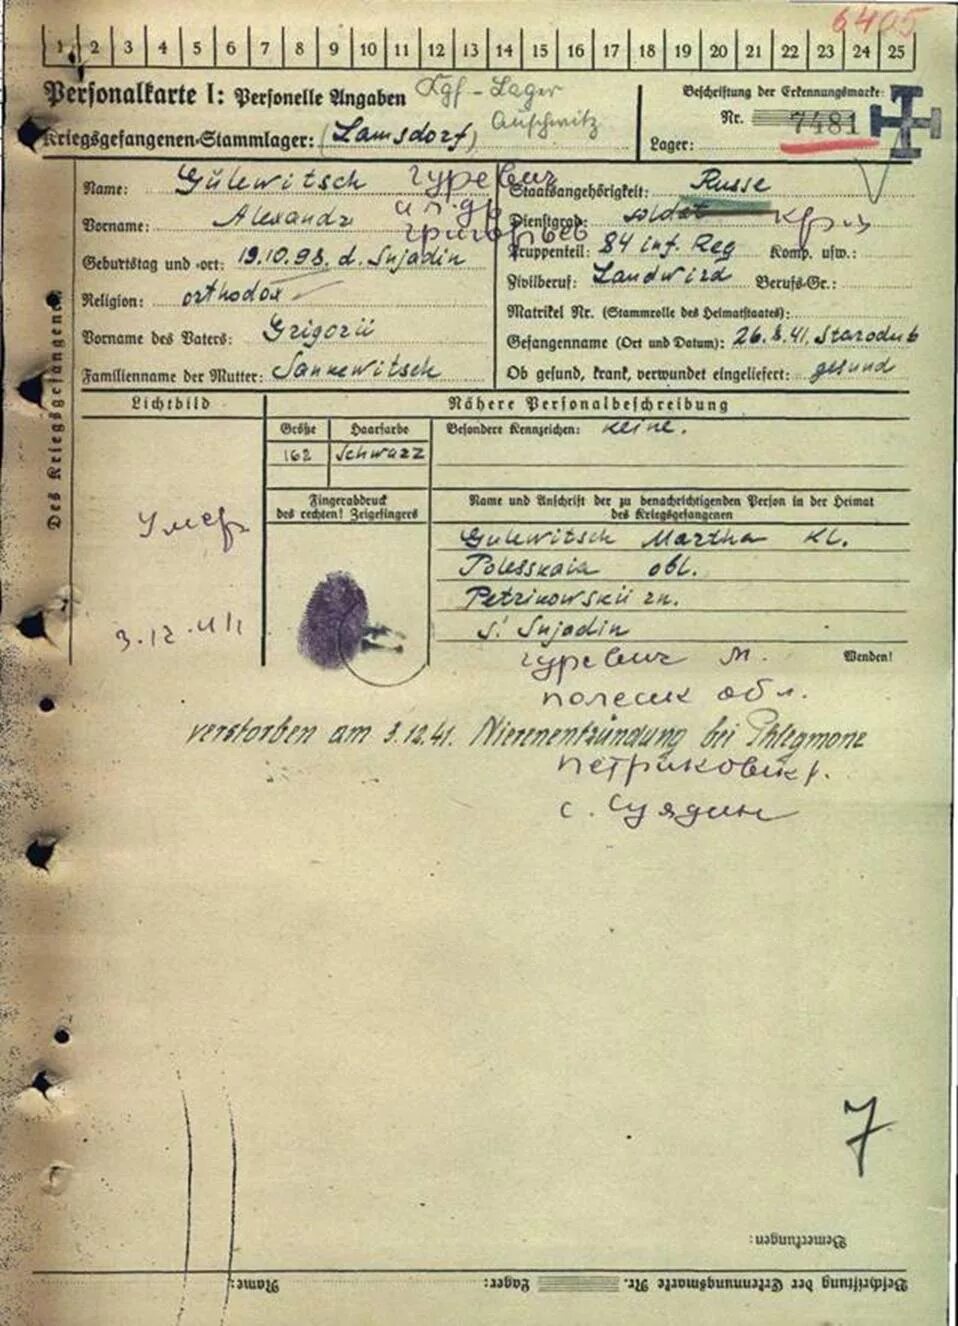 6405
1 2 3 4 5 6 7 8 9 10 11 12 13 14 15 16 17 18 19 20 21 22 23 24 25
Personalkarte I: Personelle Angaben
Kgf-Lager
Auschwitz
Beschriftung der Erkennungsmarke:
Nr. 7481
Kriegsgefangenen-Stammlager: (Lamsdorf)
Lager:
Des Kriegsgefangenen
Name: Gulewitsch гуревич
Vorname: Alexandr ал.др
григорьев
Geburtstag und -ort: 19.10.98. d. Sujadin
Religion: orthodox
Vorname des Vaters: Grigorii
Familienname der Mutter: Sankewitsch
Staatsangehörigkeit: Russe
Dienstgrad: soldat
Truppenteil: 84 inf. Reg Komp. usw.:
Zivilberuf: Landwird Berufs-Gr.:
Matrikel Nr. (Stammrolle des Heimatstaates):
Gefangenname (Ort und Datum): 26.8.41, Starodub
Ob gesund, krank, verwundet eingeliefert: gesund
Lichtbild
Nähere Personalbeschreibung
Größe
Haarfarbe
Besondere Kennzeichen: Keine.
162
Schwarz
Fingerabdruck
des rechten! Zeigefingers
Name und Anschrift der zu benachrichtigenden Person in der Heimat
des Kriegsgefangenen
Умер
3.12.41
Gulewitsch Martha Kl.
Polesskaia obl.
Petrikowskii rn.
s. Sujadin
Wenden!
гуревич М.
полеск обл.
verstorben am 3.12.41. Nierenentzündung bei Phlegmone
петриковск р.
с. Суядин
7
Bemerkungen:
Beschriftung der Erkennungsmarke Nr. Lager: Name: